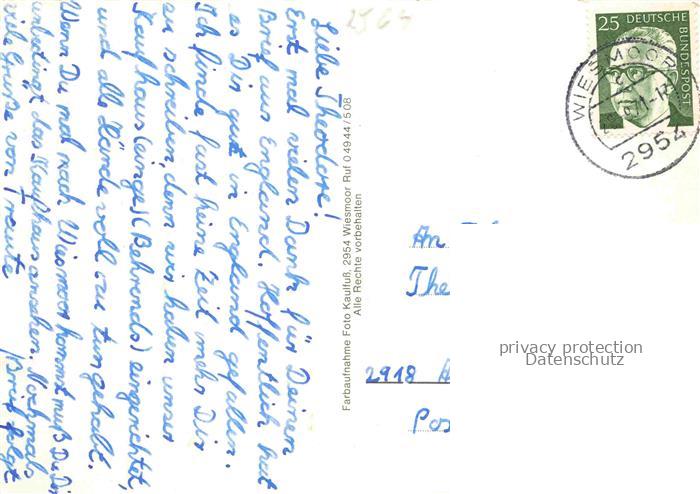 Liebe Theodore!
Erst mal vielen Dank für Deinen
Brief aus England. Hoffentlich hat
es Dir gut in England gefallen.
Ich finde fast keine Zeit mehr Dir
zu schreiben, denn wir haben unser
Kaufhaus (einge) (Behrends) eingerichtet,
und alle Hände voll zu tun gehabt.
Wenn Du mal nach Wiesmoor kommst, mußt Du Dir
unbedingt das Kaufhaus ansehen. Nochmals
viele Grüße von Frauke
(Brief folgt
Farbaufnahme Foto Kaulfuß, 2954 Wiesmoor Ruf 0 49 44 / 5 08
Alle Rechte vorbehalten
25 DEUTSCHE
BUNDESPOST
WIESMOOR
2954
An
The
2918
Pos
privacy protection
Datenschutz